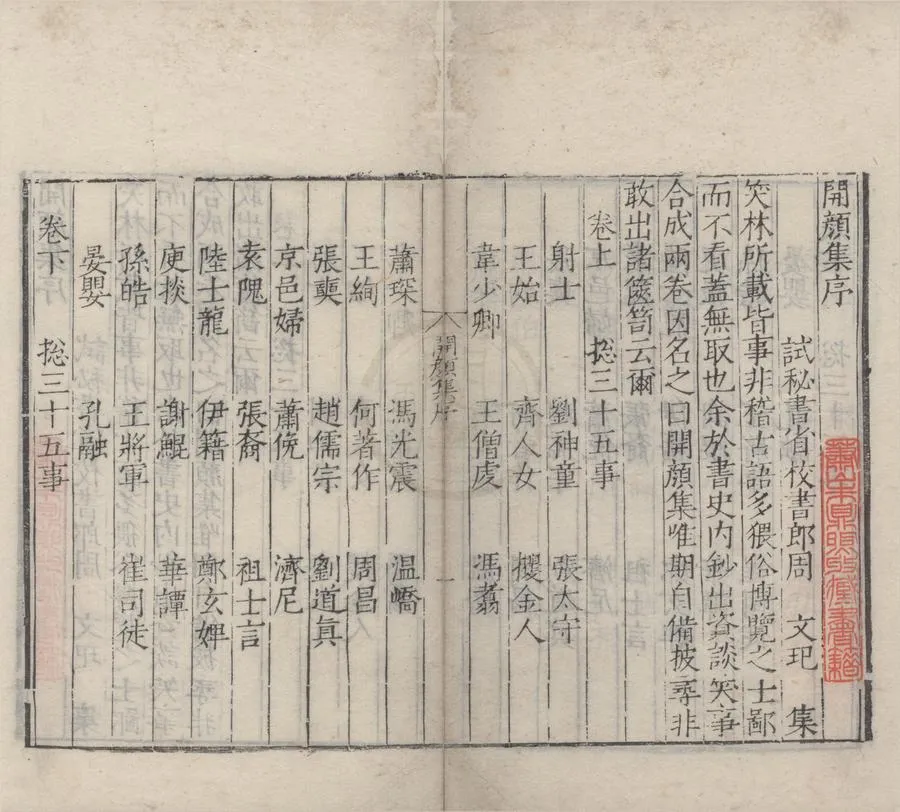 開顏集序
試秘書省校書郎周 文玘 集
笑林所載皆事非稽古語多猥俗博覽之士鄙
而不看蓋無取也余於書史内鈔出資談笑事
合成兩卷因名之曰開顏集惟期自備披尋非
敢出諸篋笥云爾
卷上 捴三十五事
射士 劉神童 張太守
王始 齊人女 攫金人
韋少卿 王僧虔 馮翥
開顏集序 一
蕭琛 馮光震 温嶠
王絢 何著作 周昌
張奭 趙儒宗 劉道真
京邑婦 蕭俛 濟尼
袁隗 張裔 祖士言
陸士龍 伊籍 鄭玄婢
庾掞 謝鯤 華譚
孫皓 王將軍 崔司徒
晏嬰 孔融
卷下 捴三十五事